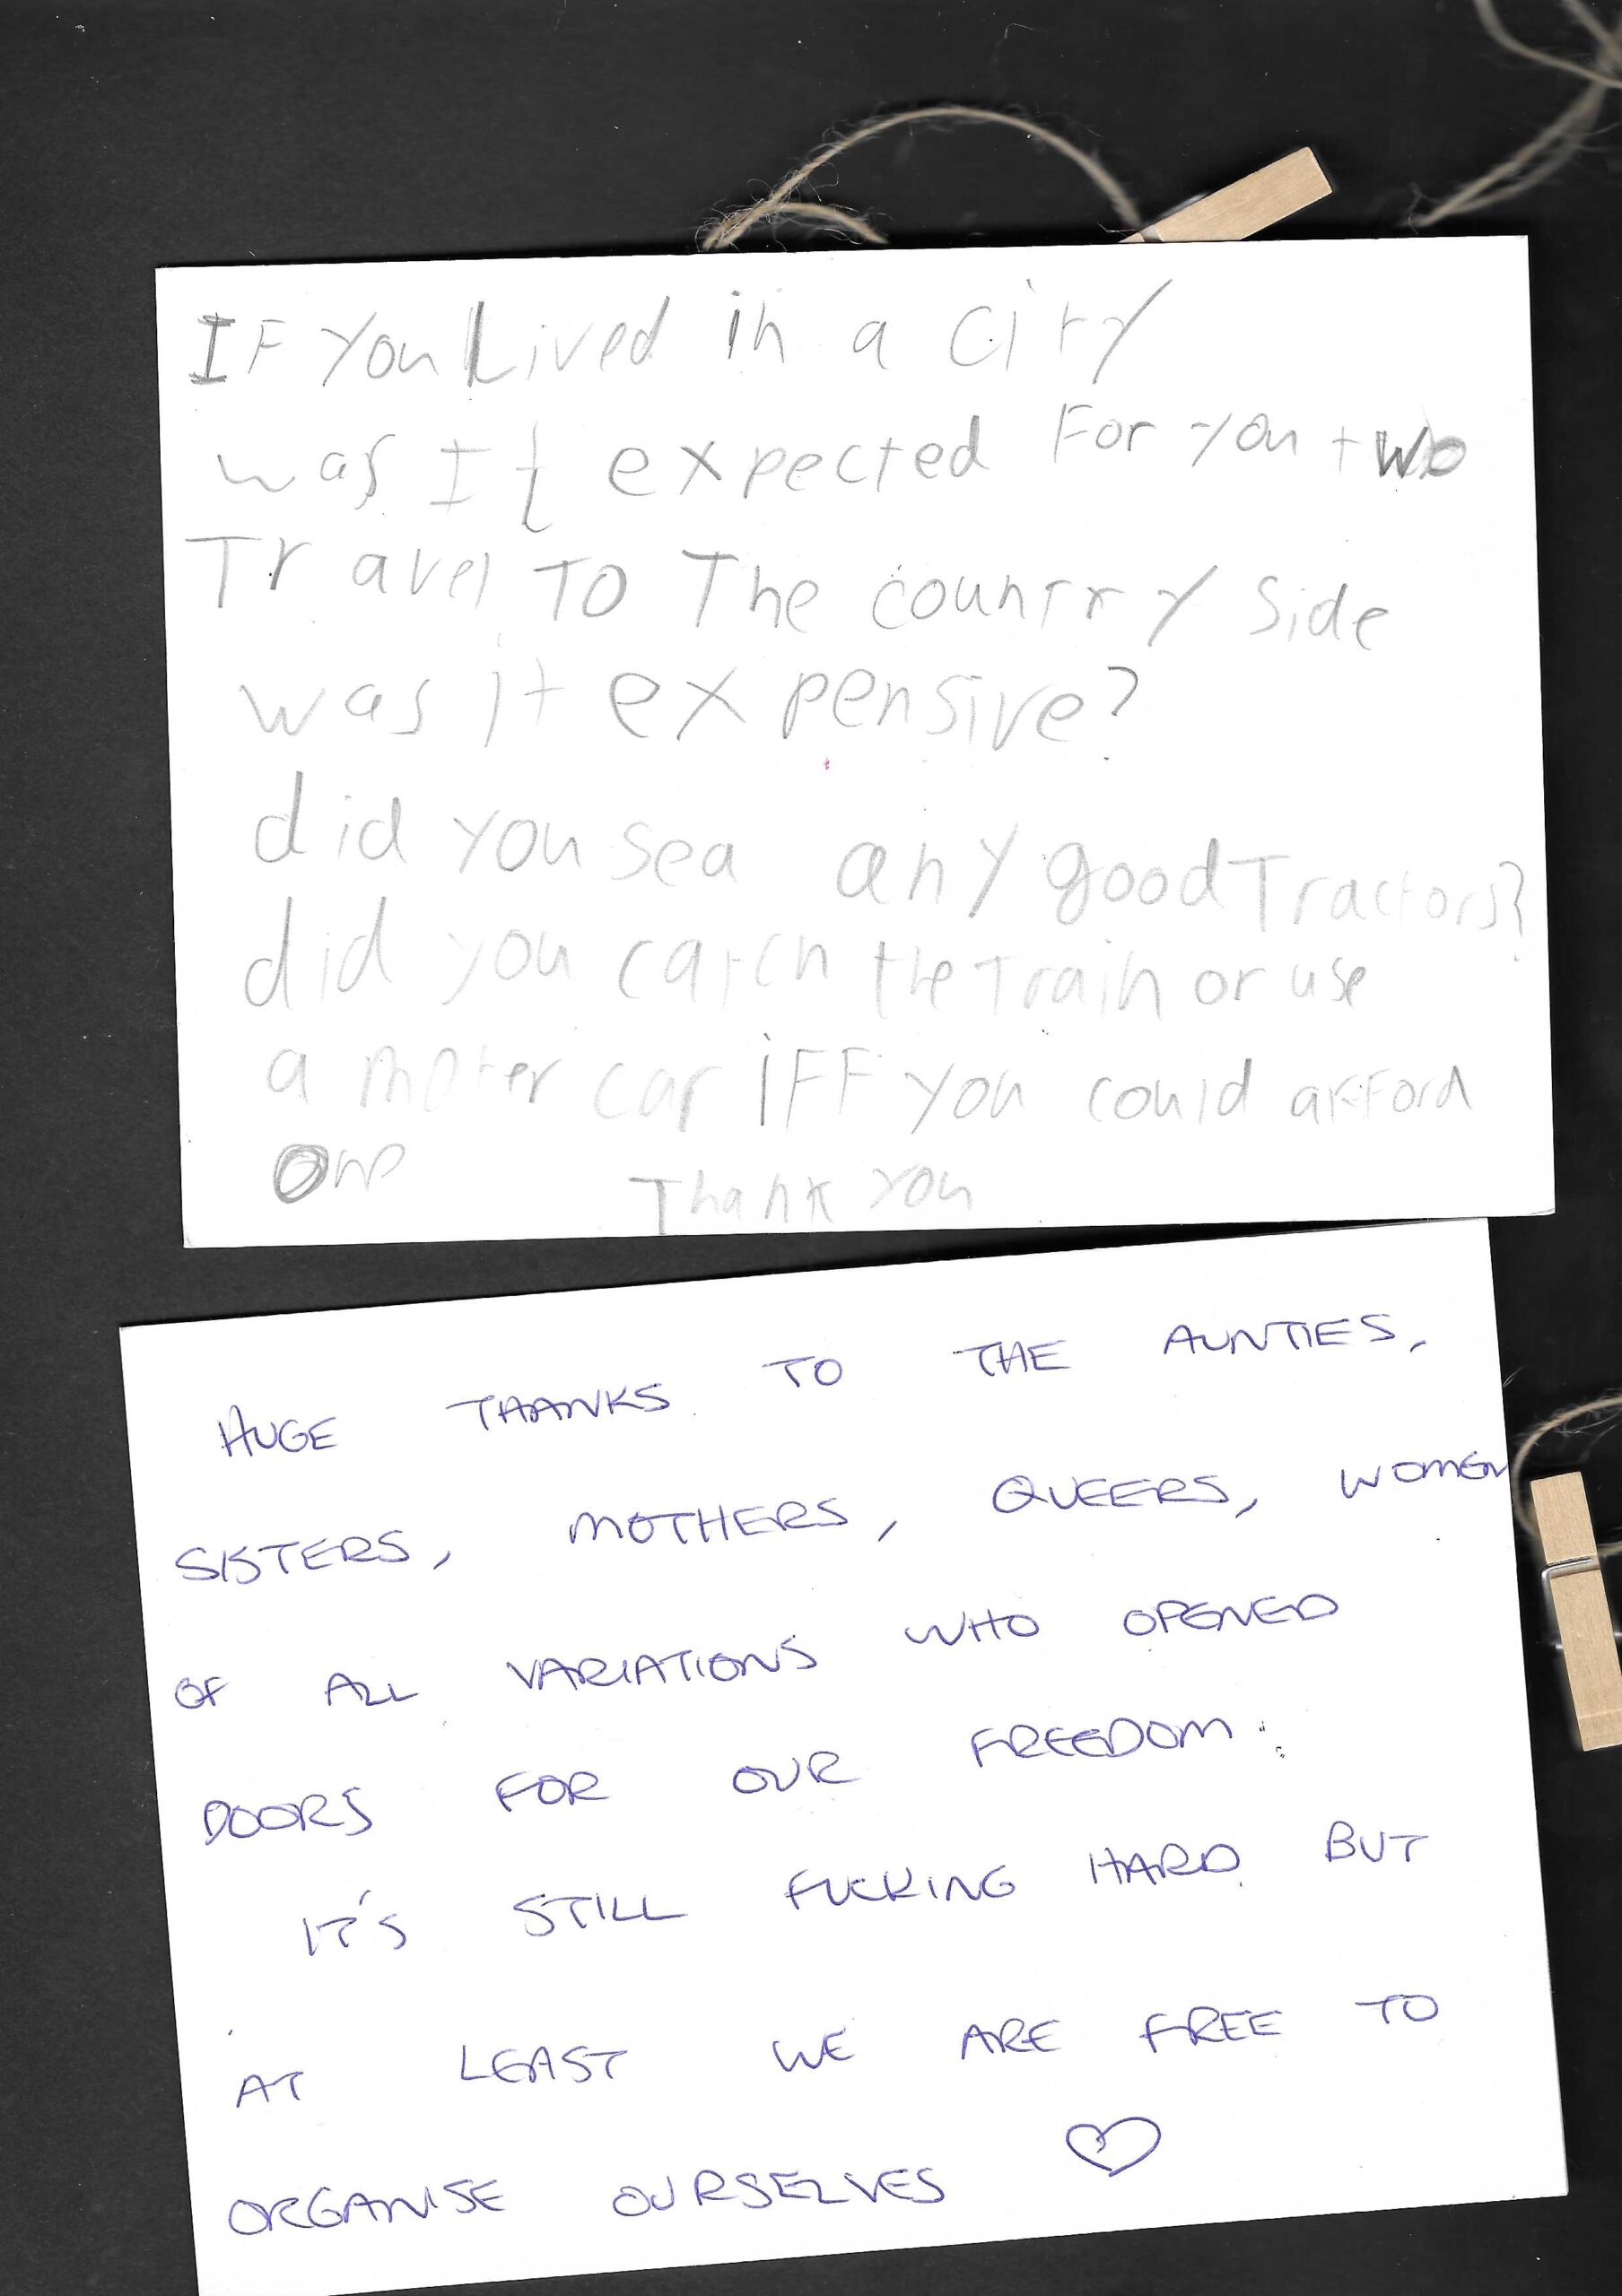 IF you Lived in a City
was It expected For you two
Travel TO The country side
was it expensive?
did you sea any good Tractors?
did you catch the Train or use
a moter car iFF you could afford
One
Thank you
HUGE THANKS TO THE AUNTIES,
SISTERS, MOTHERS, QUEERS, WOMEN
OF ALL VARIATIONS WHO OPENED
DOORS FOR OUR FREEDOM.
IT'S STILL FUCKING HARD BUT
AT LEAST WE ARE FREE TO
ORGANISE OURSELVES ♡